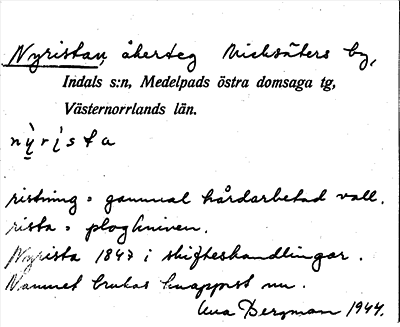 Nyristan, åkerteg Vicksäters by,
Indals s:n, Medelpads östra domsaga tg,
Västernorrlands län.
nỳrìsta
ristning = gammal hårdarbetad vall.
rista = plogkniven.
Nyrista 1847 i skifteshandlingar.
Namnet brukas knappast nu.
Bergman 1944.